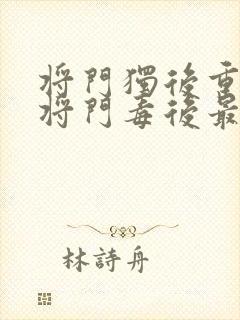 將門獨後重
將門毒後最
林詩舟